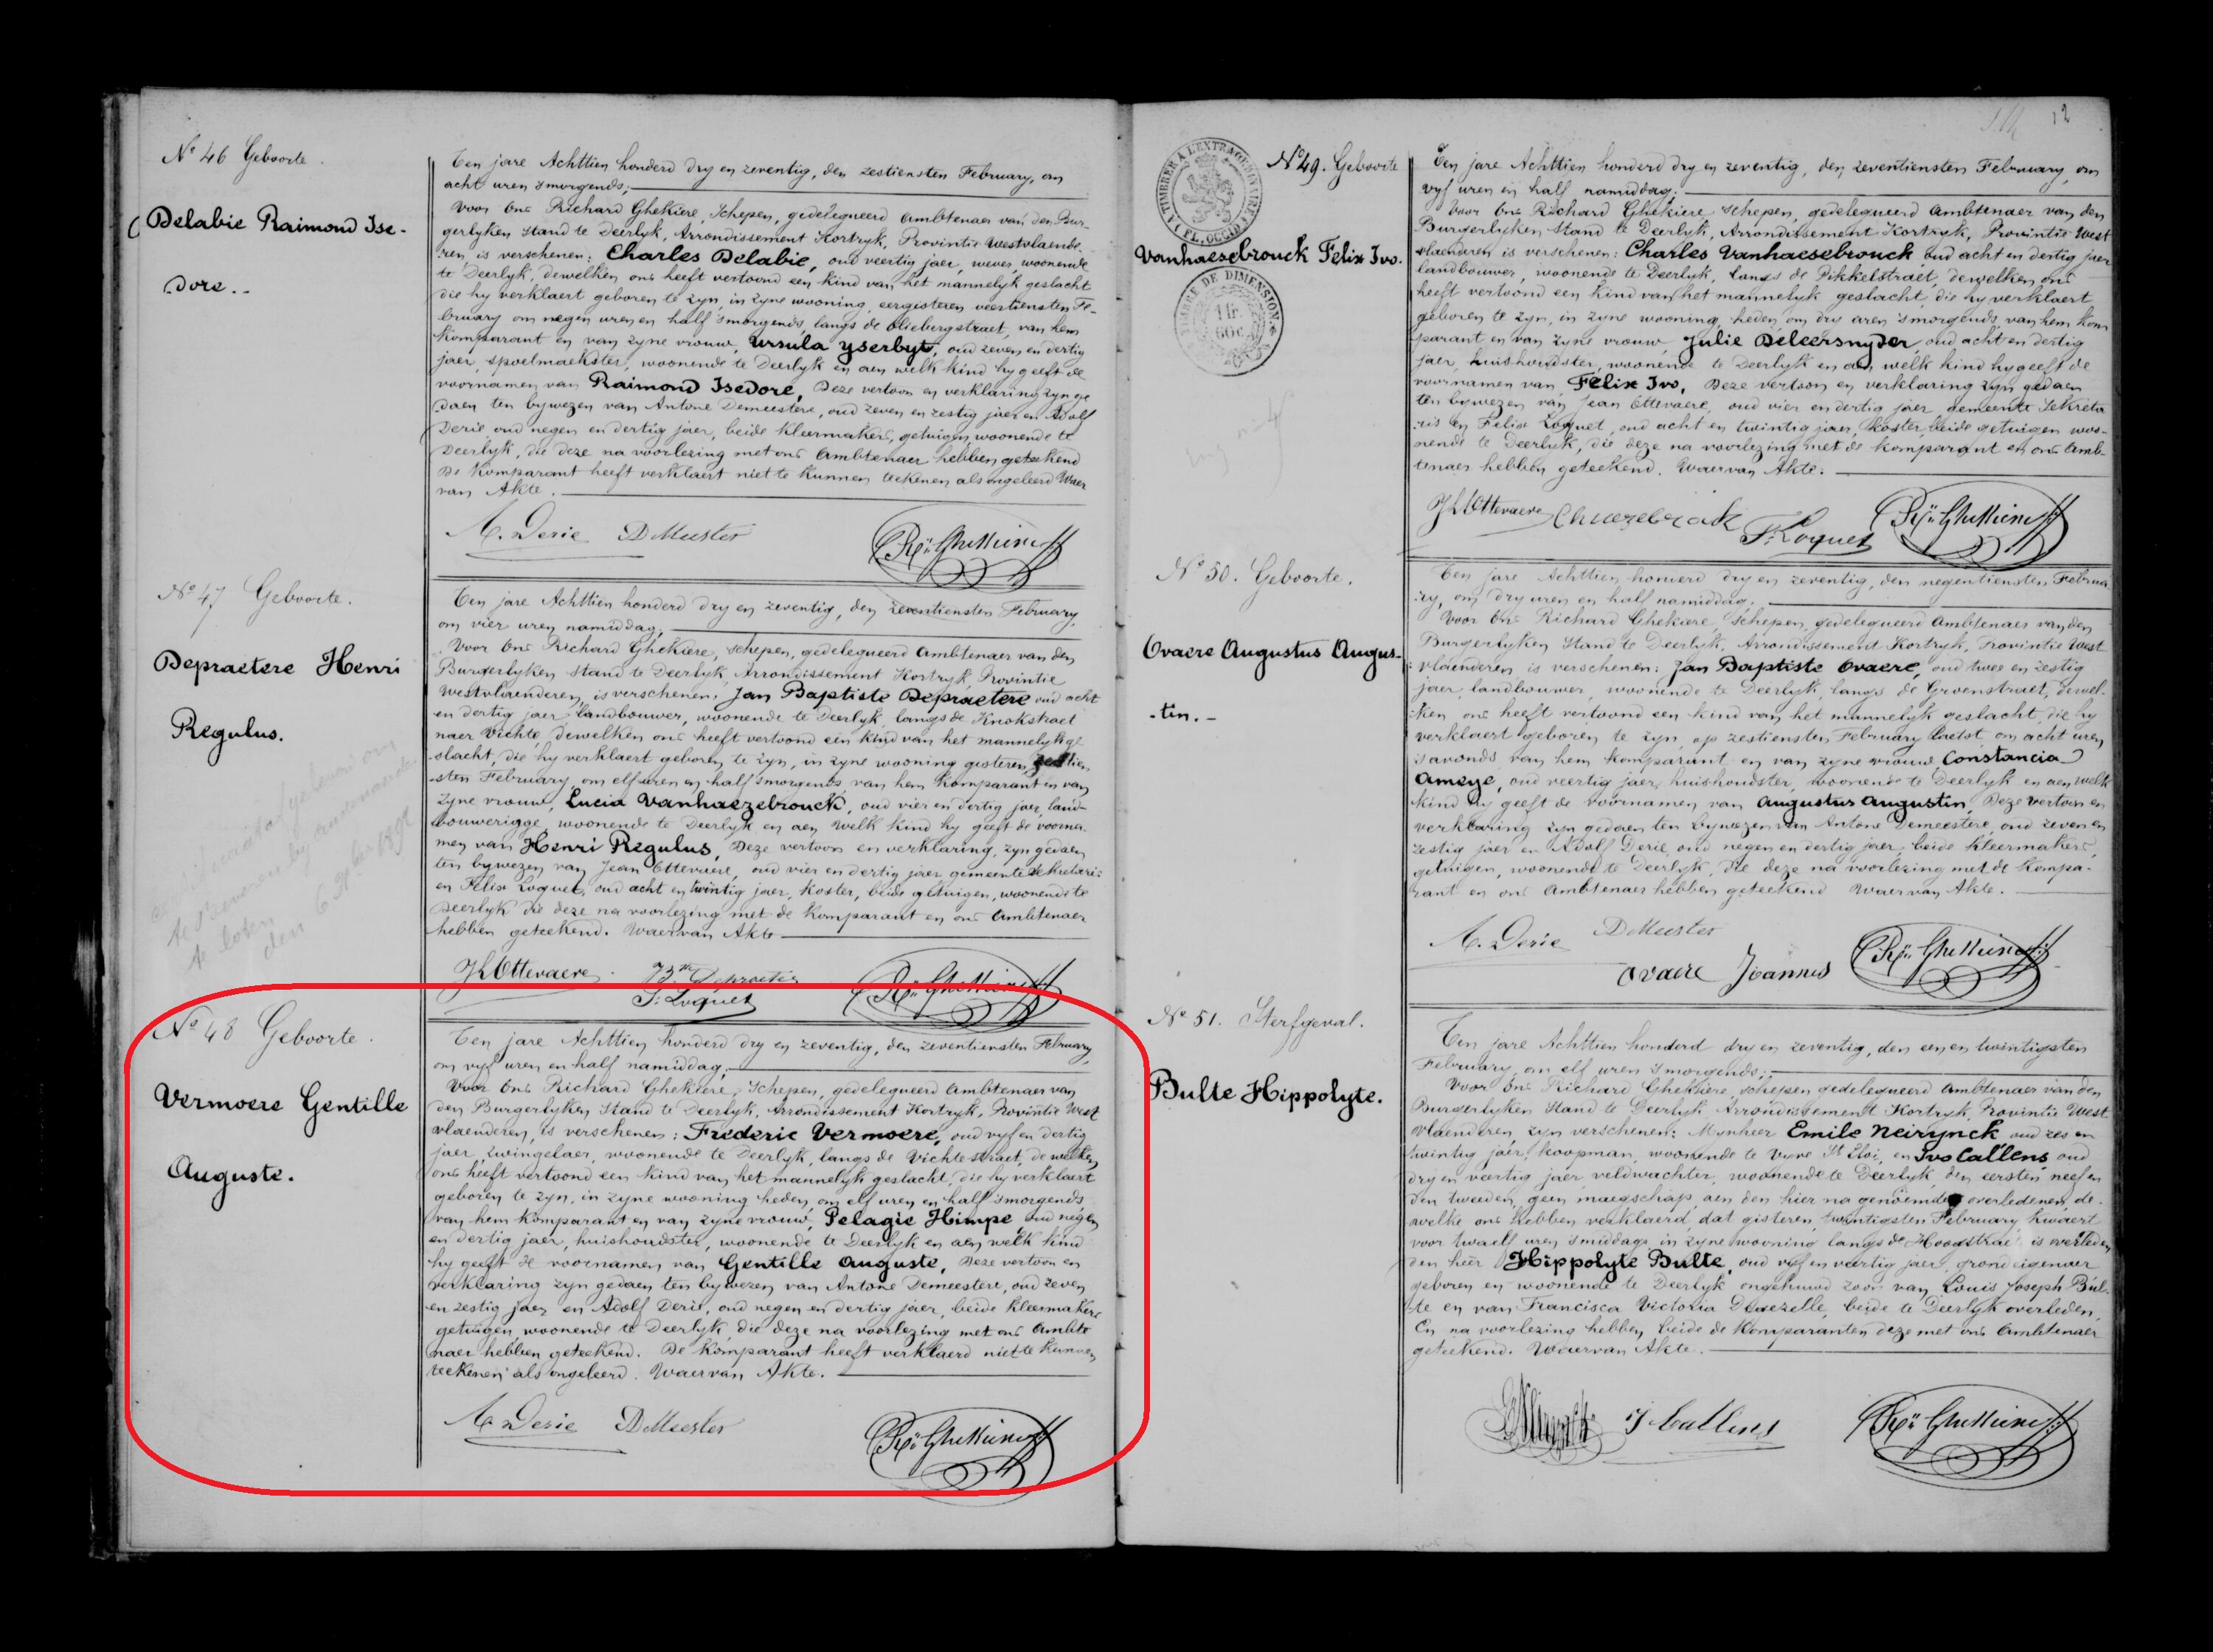 Nº 46 Geboorte.
Delabie Raimond Ise-
dore.-
Ten jare Achttien honderd dry en zeventig, den zestiensten February, om
acht uren 'smorgends;
Voor Ons Richard Ghekiere, Schepen, gedelegueerd Ambtenaer van den Bur-
gerlyken Stand te Deerlyk, Arrondissement Kortryk, Provintie Westvlaende-
ren, is verschenen: Charles Delabie, oud veertig jaer, wever, woonende
te Deerlyk, dewelken ons heeft vertoond een kind van het mannelyk geslacht
die hy verklaert geboren te zyn, in zyne wooning, eergisteren veertiensten Fe-
bruary om negen uren en half 'smorgends, langs de Oliebergstraet, van hem
Komparant en van zyne vrouw, Ursula Yserbyt, oud zeven en dertig
jaer, spoelmaekster, woonende te Deerlyk en aen welk kind hy geeft de
voornamen van Raimond Isedore, Deze vertoon en verklaring zyn ge
daen ten bywezen van Antone Demeestere, oud zeven en zestig jaer en Adolf
Derie oud negen en dertig jaer, beide kleermakers, getuigen, woonende te
Deerlyk, die deze na voorlezing met ons Ambtenaer hebben geteekend
De Komparant heeft verklaert niet te kunnen teekenen als ongeleerd Waer
van Akte.
A. Derie DMeester Rd Ghekiere
Nº 47 Geboorte.
Depraetere Henri
Regulus.
Ten jare Achttien honderd dry en zeventig, den zeventiensten February,
om vier uren namiddag;
Voor Ons Richard Ghekiere, Schepen, gedelegueerd Ambtenaer van den
Burgerlyken Stand te Deerlyk, Arrondissement Kortryk, Provintie
Westvlaenderen, is verschenen: Jan Baptiste Depraetere oud acht
en dertig jaer, landbouwer, woonende te Deerlyk, langs de Knokstraet
naer Vichte, dewelken ons heeft vertoond een kind van het mannelyk ge
slacht, die hy verklaert geboren te zyn, in zyne wooning gisteren zestien
sten February, om elf uren en half 'smorgends, van hem Komparant en van
zyne vrouw, Lucia Vanhaezebrouck, oud vier en dertig jaer, land-
bouwerigge, woonende te Deerlyk en aen welk kind hy geeft de voorna-
men van Henri Regulus, Deze vertoon en verklaring, zyn gedaen
ten bywezen van Jean Ottevaere, oud vier en dertig jaer gemeente Sekretaris
en Felix Loquet, oud acht en twintig jaer, koster, beide getuigen, woonende te
Deerlyk die deze na voorlezing met de Komparant en ons Ambtenaer
hebben geteekend. Waervan Akte
JL Ottevaere JBte Depraetere F. Loquet Rd Ghekiere
Nº 48 Geboorte.
Vermoere Gentille
Auguste.
Ten jare Achttien honderd dry en zeventig, den zeventiensten February,
om vyf uren en half namiddag;
Voor Ons Richard Ghekiere, Schepen, gedelegueerd Ambtenaer van
den Burgerlyken Stand te Deerlyk, Arrondissement Kortryk, Provintie West
vlaenderen, is verschenen: Frederic Vermoere, oud vyf en dertig
jaer, zwingelaer, woonende te Deerlyk, langs de Vichtestraet, de welken
ons heeft vertoond een kind van het mannelyk geslacht, die hy verklaert
geboren te zyn, in zyne wooning heden, om elf uren en half 'smorgends
van hem Komparant en van zyne vrouw, Pelagie Himpe, oud negen
en dertig jaer, huishoudster, woonende te Deerlyk en aen welk kind
hy geeft de voornamen van Gentille Auguste, Deze vertoon en
verklaring zyn gedaen ten bywezen van Antone Demeestere, oud zeven
en zestig jaer en Adolf Derie, oud negen en dertig jaer, beide kleermakers
getuigen, woonende te Deerlyk, die deze na voorlezing met ons Ambte
naer hebben geteekend. De Komparant heeft verklaerd niet te kunnen
teekenen als ongeleerd. Waervan Akte.
A. Derie DMeester Rd Ghekiere
12
TIMBRER A L'EXTRAORDINAIRE
FL. OCCID
TIMBRE DE DIMENSION
1 fr.
60 c.
Nº 49. Geboorte
Vanhaesebrouck Felix Ivo.
Ten jare Achttien honderd dry en zeventig, den zeventiensten February, om
vyf uren en half namiddag:
Voor Ons Richard Ghekiere Schepen, gedelegueerd Ambtenaer van den
Burgerlyken Stand te Deerlyk, Arrondissement Kortryk, Provintie West
vlaenderen is verschenen: Charles Vanhaesebrouck oud acht en dertig jaer
landbouwer, woonende te Deerlyk, langs de Pikkelstraet, dewelken ons
heeft vertoond een kind van het mannelyk geslacht, die hy verklaert
geboren te zyn, in zyne wooning, heden, om dry uren 'smorgends van hem Kom
parant en van zyne vrouw, Julie Deleersnyder, oud acht en dertig
jaer, huishoudster, woonende te Deerlyk en aen welk kind hy geeft de
voornamen van Felix Ivo, Deze vertoon en verklaring zyn gedaen
ten bywezen van Jean Ottevaere, oud vier en dertig jaer gemeente Sekreta
ris en Felix Loquet, oud acht en twintig jaer, Koster, beide getuigen woo-
nende te Deerlyk, die deze na voorlezing met de komparant en ons Amb-
tenaer hebben geteekend. Waervan Akte.
JL Ottevaere F. Loquet Rd Ghekiere
Nº 50. Geboorte.
Ovaere Augustus Augus-
tin.-
Ten jare Achttien honderd dry en zeventig, den negentiensten Februa
ry, om dry uren en half namiddag.
Voor Ons Richard Ghekiere, Schepen, gedelegueerd Ambtenaer van den
Burgerlyken Stand te Deerlyk, Arrondissement Kortryk, Provintie West
vlaenderen is verschenen: Jan Baptiste Ovaere, oud twee en zestig
jaer, landbouwer, woonende te Deerlyk, langs de Groenstraet, dewel-
ken ons heeft vertoond een kind van het mannelyk geslacht, die hy
verklaert geboren te zyn, op zestiensten February laetst, om acht uren
's avonds, van hem komparant en van zyne vrouw Constancia
Ameye, oud veertig jaer, huishoudster, woonende te Deerlyk en aen welk
kind hy geeft de voornamen van Augustus Augustin, Deze vertoon en
verklaring zyn gedaen ten bywezen van Antone Demeestere, oud zeven en
zestig jaer en Adolf Derie, oud negen en dertig jaer, beide kleermakers,
getuigen, woonende te Deerlyk, die deze na voorlezing met de Kompa-
rant en ons Ambtenaer hebben geteekend Waervan Akte.
A. Derie DMeester Ovaere Joannes Rd Ghekiere
Nº 51. Sterfgeval.
Bulte Hippolyte.
Ten jare Achttien honderd dry en zeventig, den een en twintigsten
February, om elf uren 'smorgends;
Voor Ons Richard Ghekiere, Schepen gedelegueerd Ambtenaer van den
Burgerlyken Stand te Deerlyk, Arrondissement Kortryk, Provintie West
vlaenderen, zyn verschenen: Mynheer Emile Neirynck, oud zes en
twintig jaer, koopman, woonende te Vyve St Eloi, en Ivo Callens, oud
dry en veertig jaer veldwachter, woonende te Deerlyk, den eersten neef en
den tweeden, geen maegschap, aen den hier na genoemden overledenen, de-
welke ons hebben verklaerd, dat gisteren, twintigsten February kwaert
voor twaelf uren 'smiddags in zyne wooning langs de Hoogstraet is overleden
den heer Hippolyte Bulte, oud vyf en veertig jaer, grondeigenaer
geboren en woonende te Deerlyk ongehuwd zoon van Louis Joseph Bul-
te en van Francisca Victoria Dhaezelle, beide te Deerlyk overleden,
En na voorlezing hebben beide de Komparanten deze met ons Ambtenaer
geteekend. Waervan Akte.
Callens Rd Ghekiere